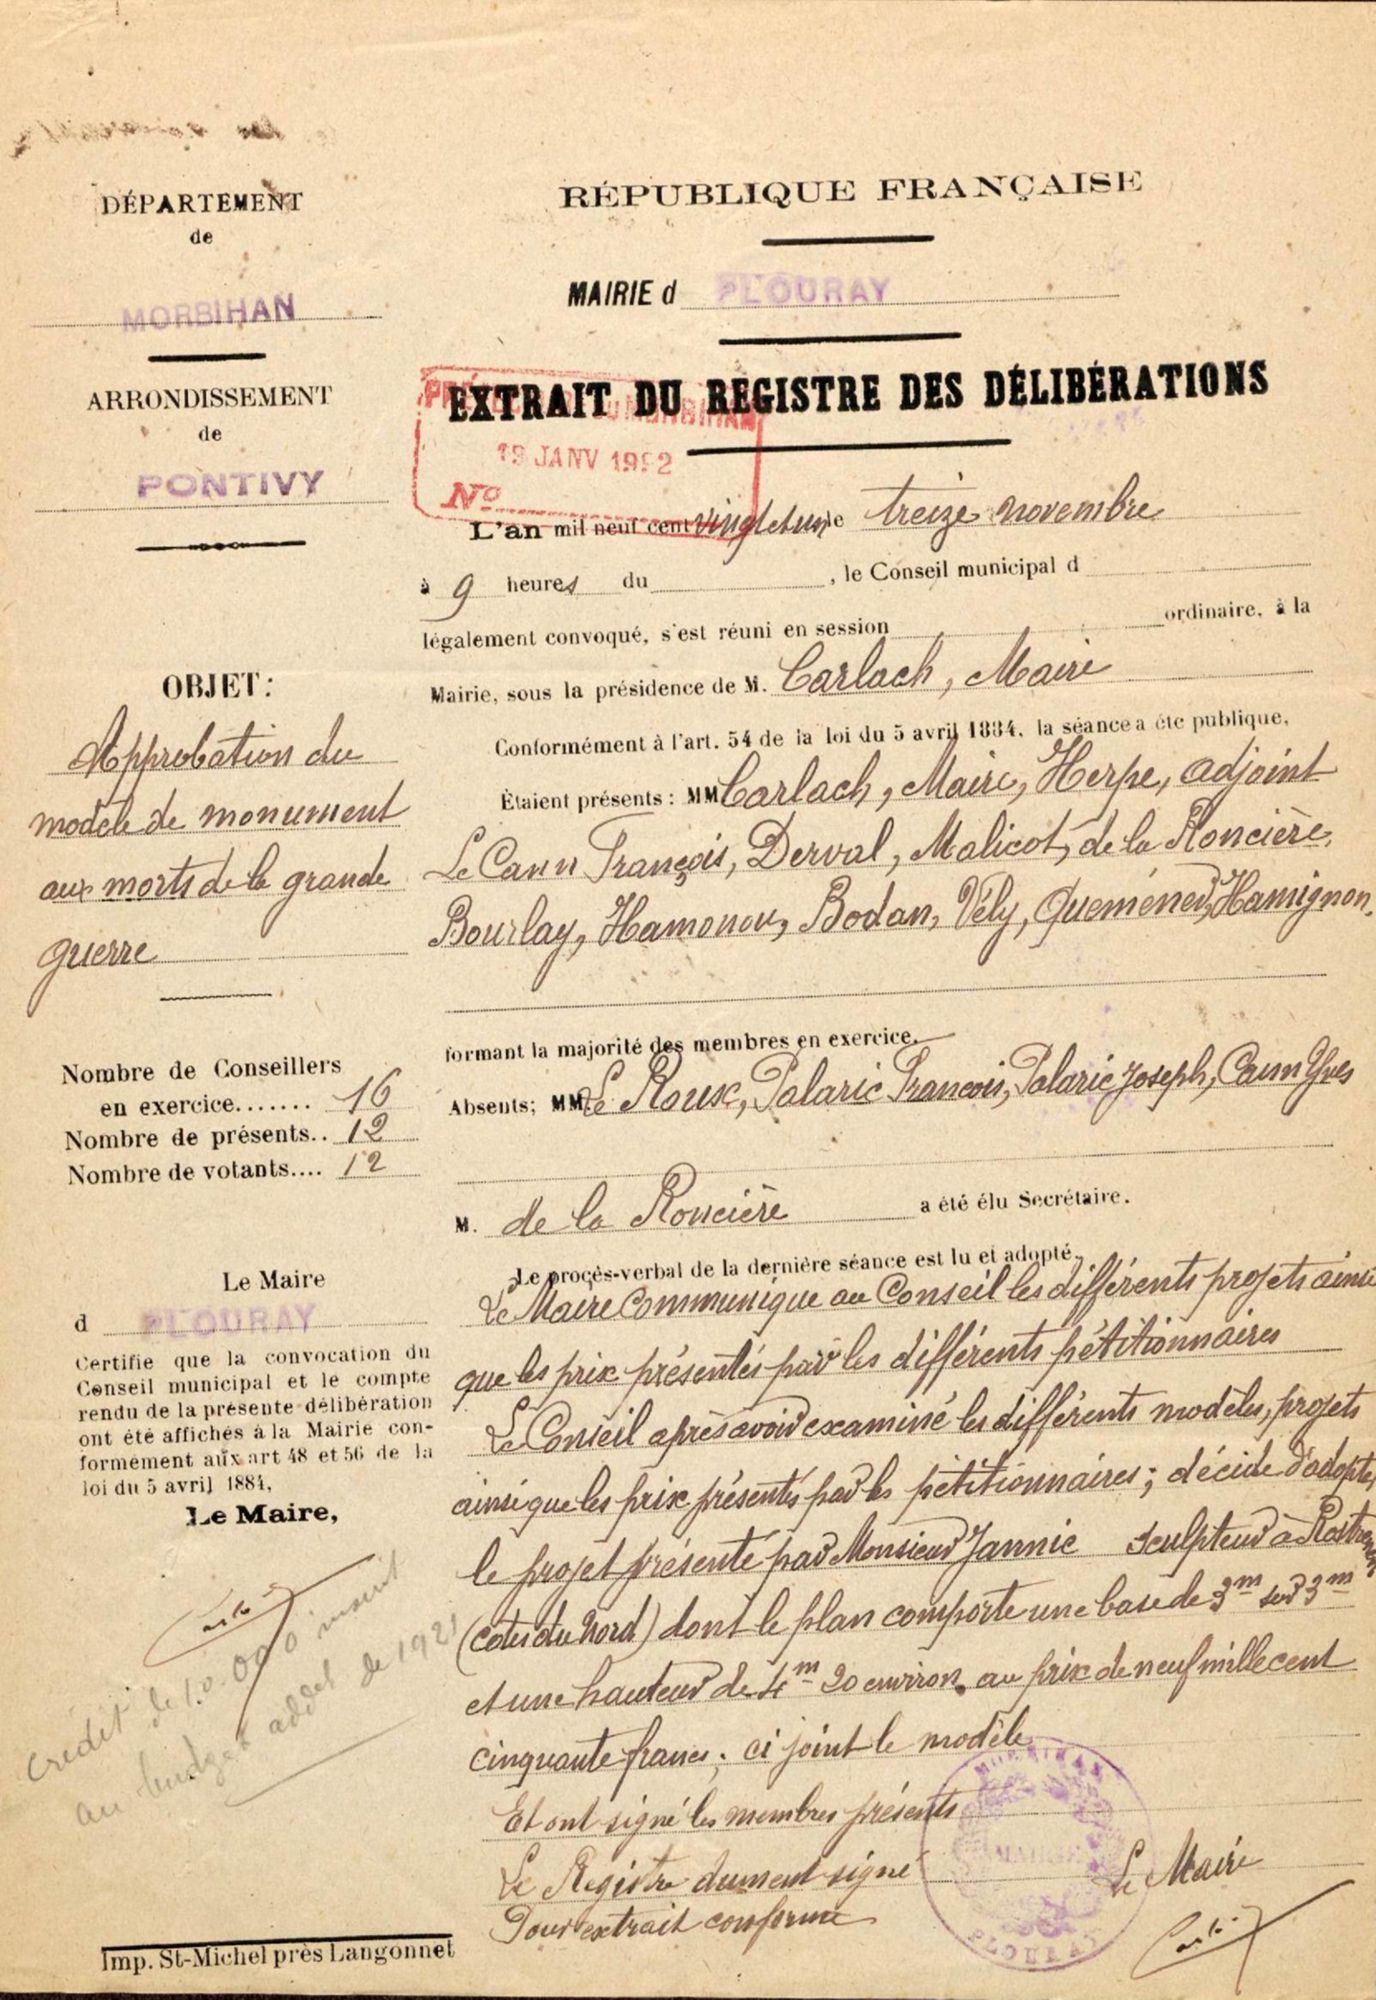 RÉPUBLIQUE FRANÇAISE
MAIRIE d PLOURAY
EXTRAIT DU REGISTRE DES DÉLIBÉRATIONS
PRÉFECTURE DU MORBIHAN
19 JANV 1922
No
DÉPARTEMENT
de
MORBIHAN
ARRONDISSEMENT
de
PONTIVY
OBJET:
Approbation du
modèle de monument
aux morts de la grande
guerre
Nombre de Conseillers
en exercice....... 16
Nombre de présents.. 12
Nombre de votants.... 12
Le Maire
d PLOURAY
Certifie que la convocation du
Conseil municipal et le compte
rendu de la présente délibération
ont été affichés à la Mairie con-
formément aux art 48 et 56 de la
loi du 5 avril 1884,
Le Maire,
Crédit de 10.000 inscrit
au budget addel de 1921
Imp. St-Michel près Langonnet
L'an mil neuf cent vingt et un le treize novembre
à 9 heures du , le Conseil municipal d
légalement convoqué, s'est réuni en session ordinaire, à la
Mairie, sous la présidence de M. Carlach, Maire
Conformément à l'art. 54 de la loi du 5 avril 1884, la séance a été publique,
Étaient présents: MM Carlach, Maire, Herpe, adjoint
Le Cann François, Derval, Malicot, de la Roncière,
Bourlay, Hamonou, Bodan, Vély, Quéméner, Hamignon,
formant la majorité des membres en exercice.
Absents; MM Le Roux, Palaric François, Palaric Joseph, Cann Yves
M. de la Roncière a été élu Secrétaire.
Le procès-verbal de la dernière séance est lu et adopté,
Le Maire communique au Conseil les différents projets ainsi
que les prix présentés par les différents pétitionnaires
Le Conseil après avoir examiné les différents modèles, projets
ainsi que les prix présentés par les pétitionnaires; décide d'adopter
le projet présenté par Monsieur Jannic sculpteur à Rostrenen
(Cotes du Nord) dont le plan comporte une base de 3m sur 3m
et une hauteur de 4m 20 environ, au prix de neuf mille cent
cinquante francs; ci joint le modèle
Et ont signé les membres présents
Le Registre dument signé
Pour extrait conforme
Le Maire
MORBIHAN
MAIRIE
PLOURAY